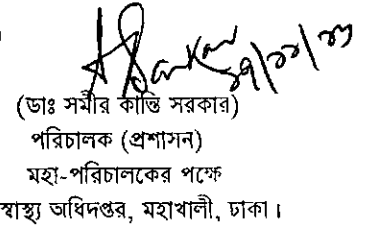 ২৭/১১/২৩
(ডাঃ সমীর কান্তি সরকার)
পরিচালক (প্রশাসন)
মহা-পরিচালকের পক্ষে
স্বাস্থ্য অধিদপ্তর, মহাখালী, ঢাকা।